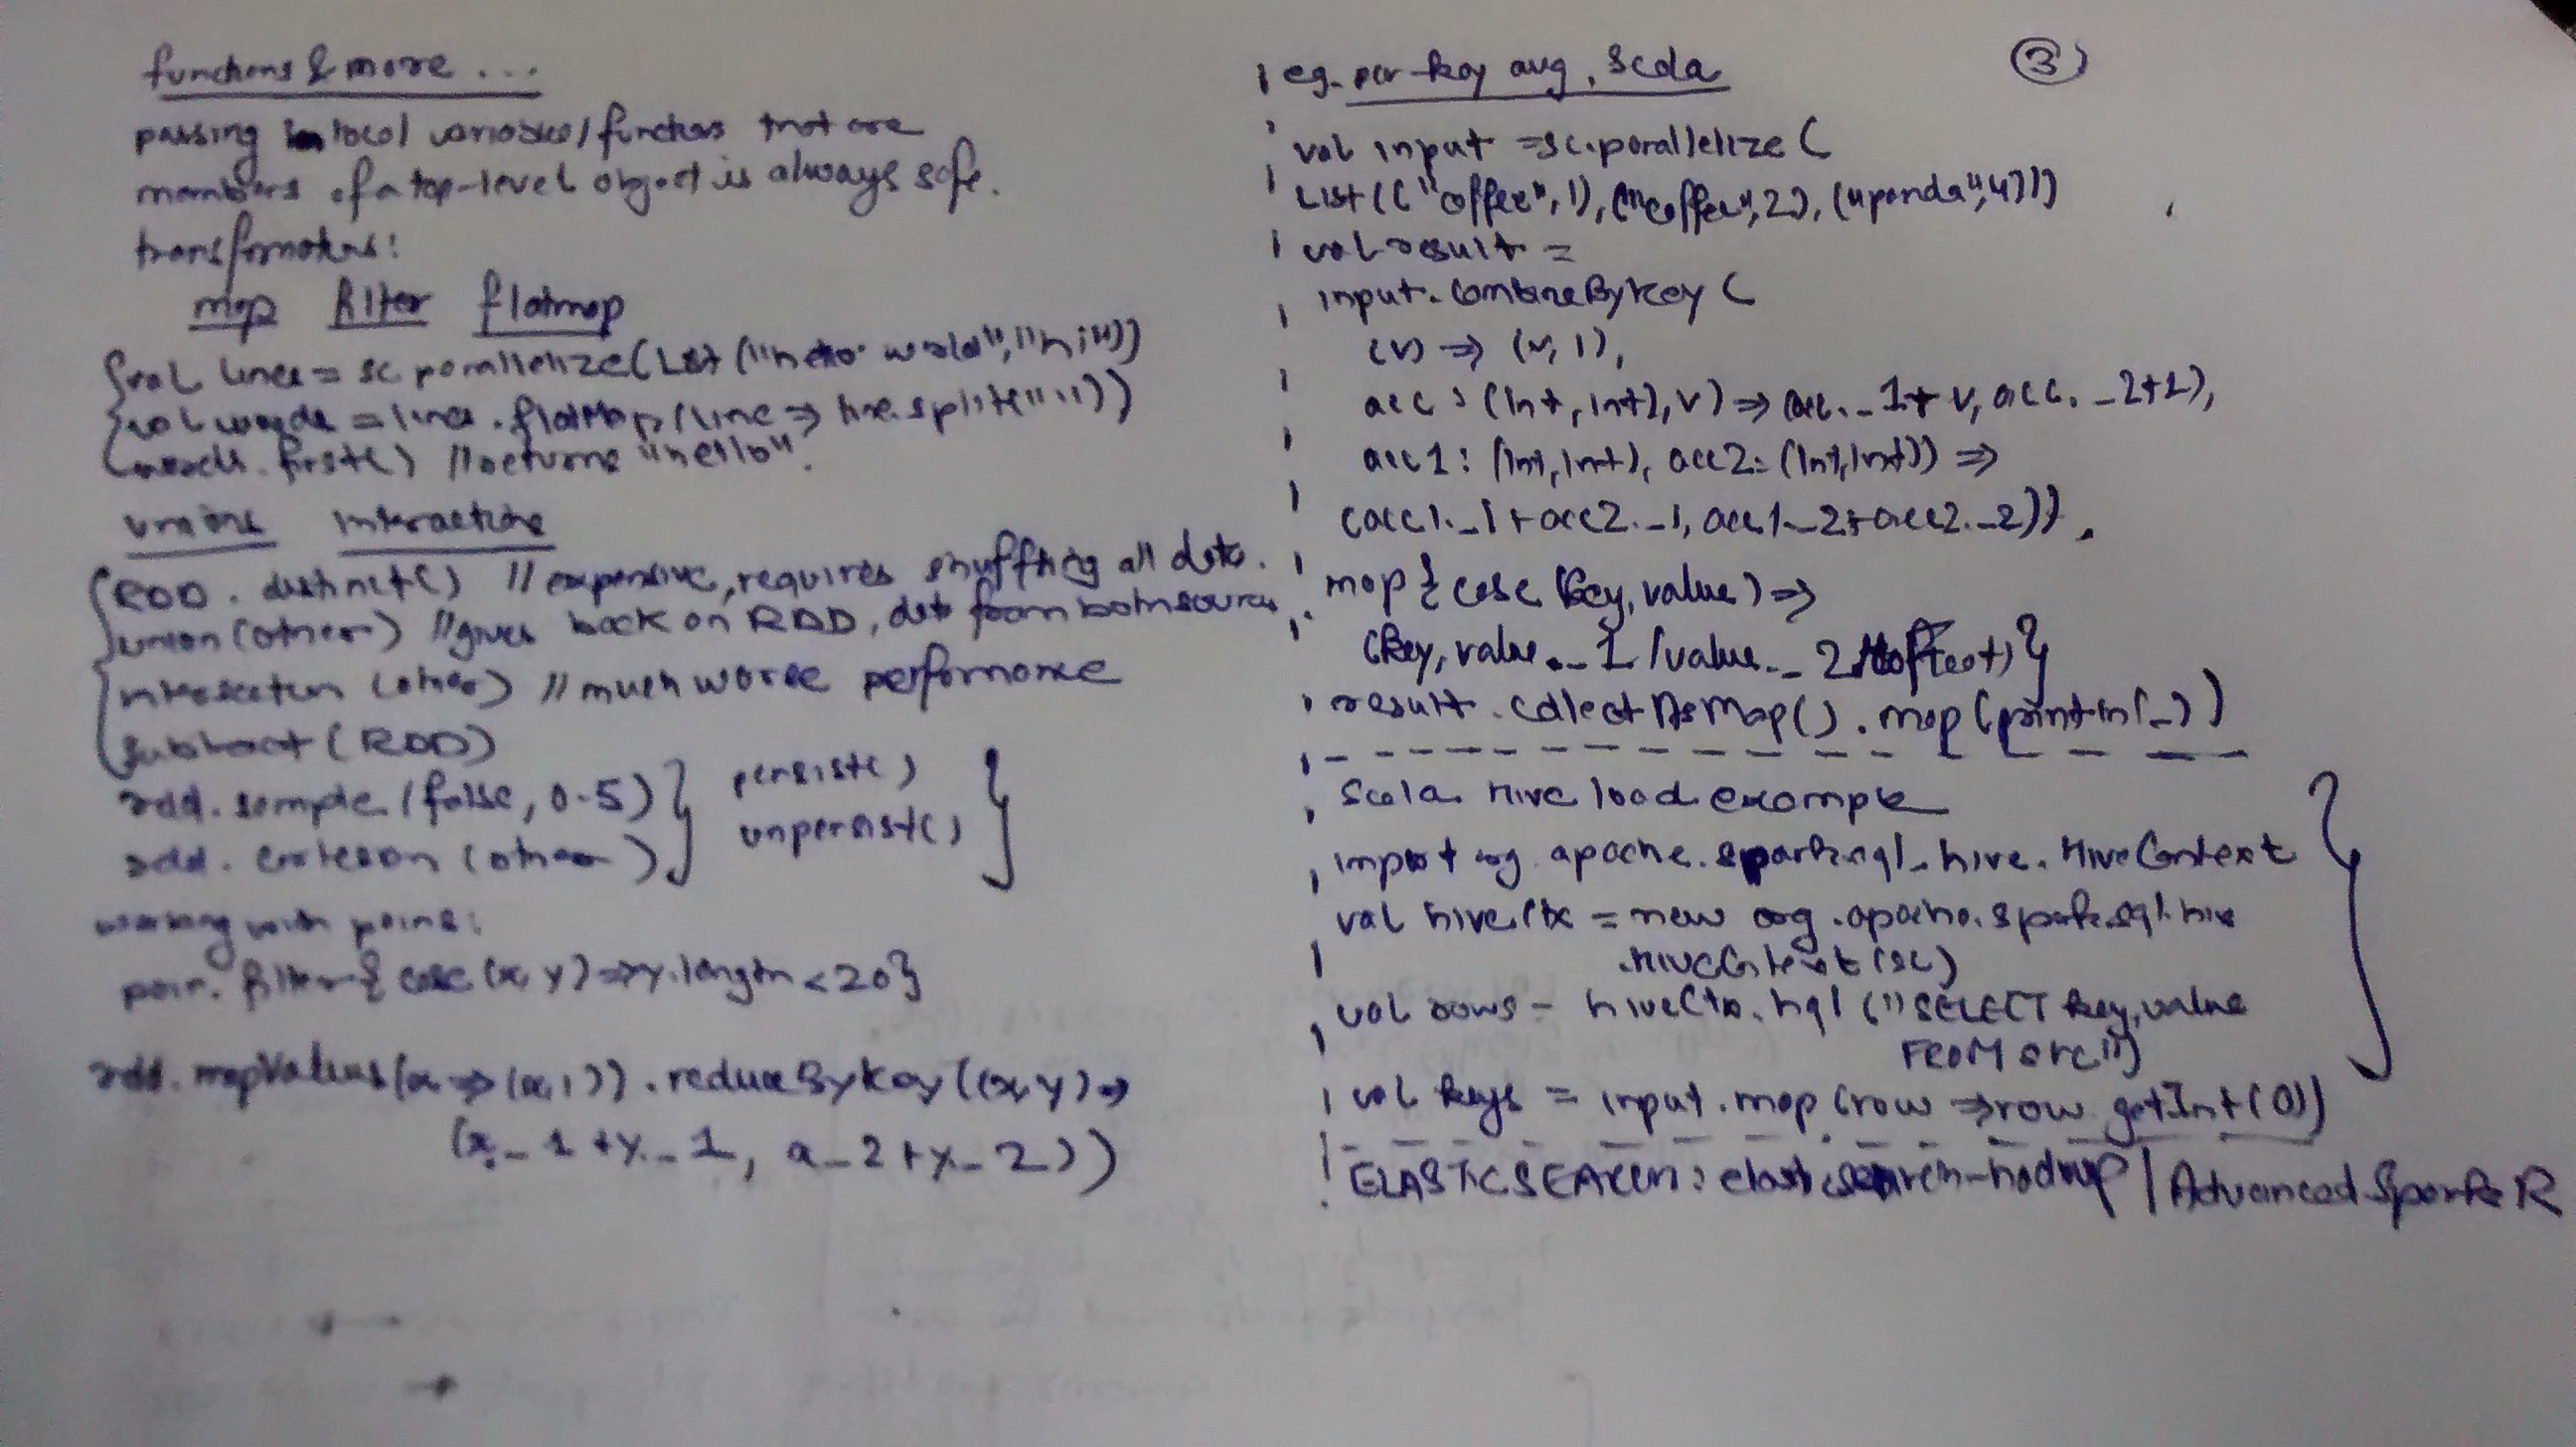 functions & more ...
passing in local variables/functions that are
members of a top-level object is always safe.
transformations:
map filter flatmap
val lines = sc.parallelize(List("hello world","hi"))
val words = lines.flatMap(line => line.split(" "))
words.first() // returns "hello".
unions
RDD.distinct() // expensive, requires shuffling all data.
union(other) // gives back an RDD, data from both sources
intersection (other) // much worse performance
subtract (RDD)
rdd.sample (false, 0.5)
persist()
unpersist()
rdd. cartesian (other)
working with pairs:
pair. filter{ case (x, y) => y.length < 20}
rdd. mapValues (x => (x,1)). reduceByKey ((x, y) =>
(x._1 + y._1, x_2 + y_2))
③
eg. per-key avg, Scala
val input = sc.parallelize (
List(("coffee",1), ("coffee",2), ("panda",4)))
val result =
input. combineByKey (
(v) => (v, 1),
acc : (Int, Int), v) => (acc._1 + v, acc._2+1),
acc1: (Int, Int), acc2: (Int, Int)) =>
(acc1._1 + acc2._1, acc1._2 + acc2._2)).
map { case (key, value) =>
(key, value._1 / value._2
result. collectAsMap(). map (println(_))
Scala Hive load example
import org. apache. spark.sql. hive. HiveContext
val hiveCtx = new org. apache. spark.sql. hive
.HiveContext (sc)
val rows = hiveCtx. hql ("SELECT key, value
FROM src")
val keys = input. map (row => row. getInt (0))
ELASTICSEARCH: elasticsearch-hadoop | Advanced Spark R